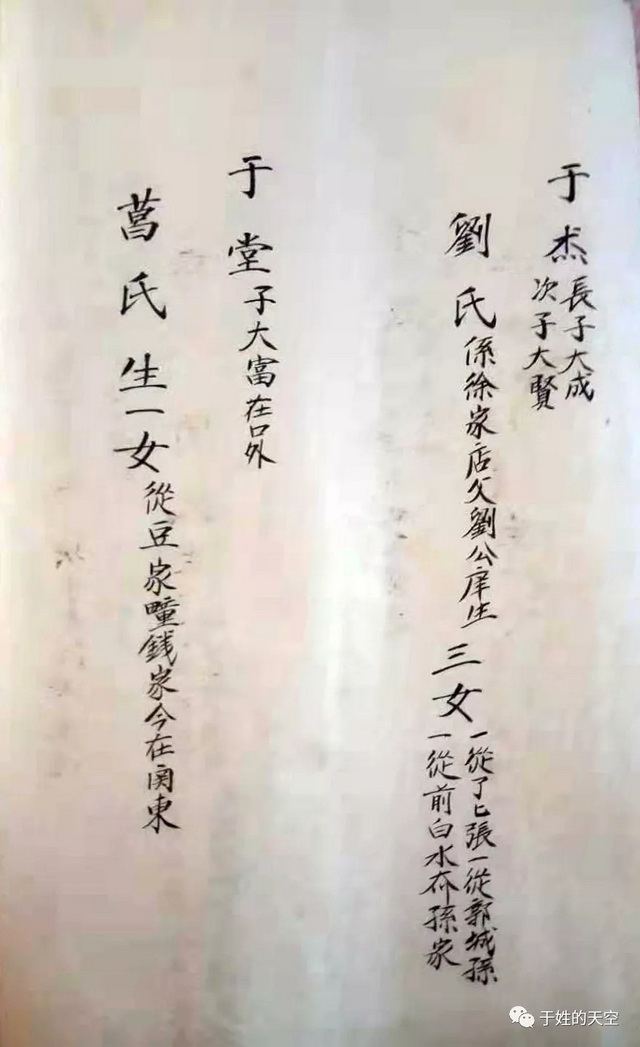 于杰長子大成
次子大賢
劉氏係徐家店父劉公庠生三女一從了七張一從郭城孫
一從前白水夼孫家
于堂子大富在口外
萵氏生一女從豆家疃錢家今在関東
于姓的天空